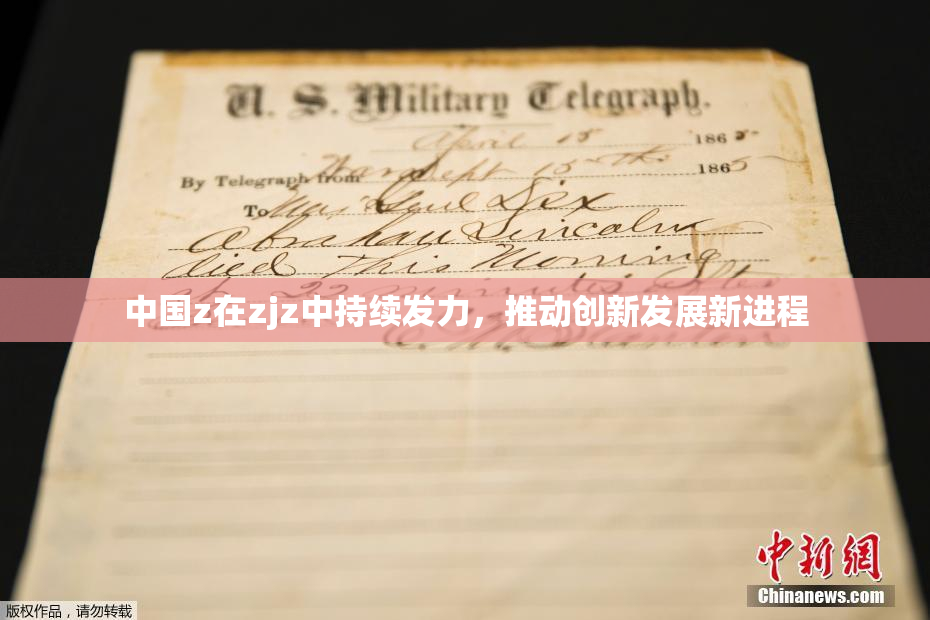 U. S. Military Telegraph.
April 15 1865
By Telegraph from War Dept 15 1865
To Maj Genl Dix
Abraham Lincoln
died This Morning
at 22 minutes after
中国z在zjz中持续发力，推动创新发展新进程
中新网
Chinanews.com
版权作品，请勿转载